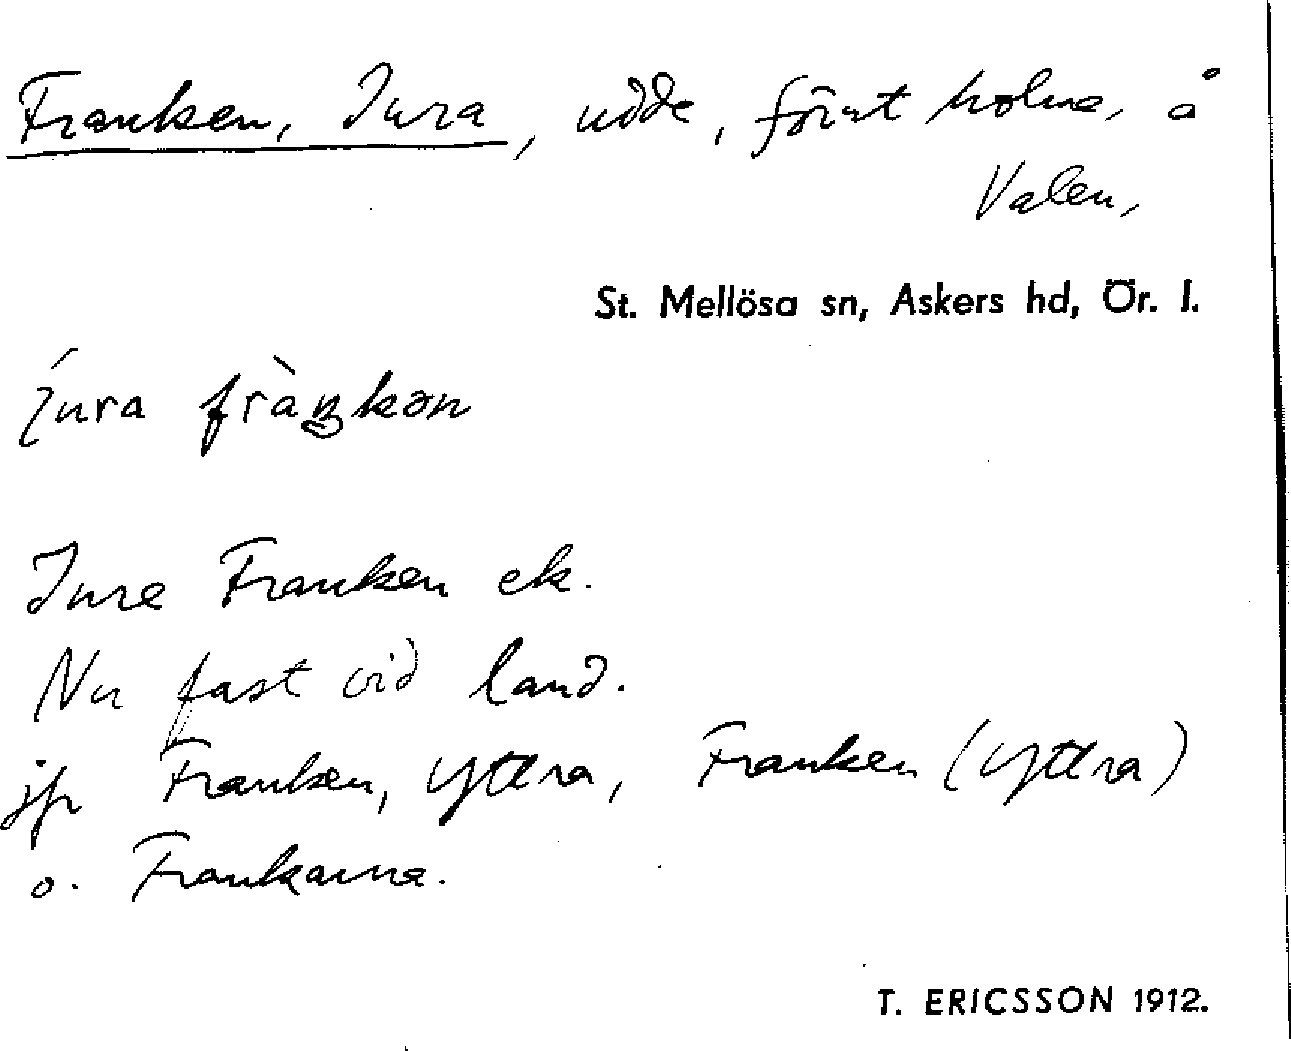 Franken, Inra, udde, förut holme, å
Valen,
St. Mellösa sn, Askers hd, Ör. l.
fràŋkən
Inre Franken ek.
Nu fast vid land.
jfr Franken, Yttra, Franken (Yttra)
o. Frankarna.
T. ERICSSON 1912.